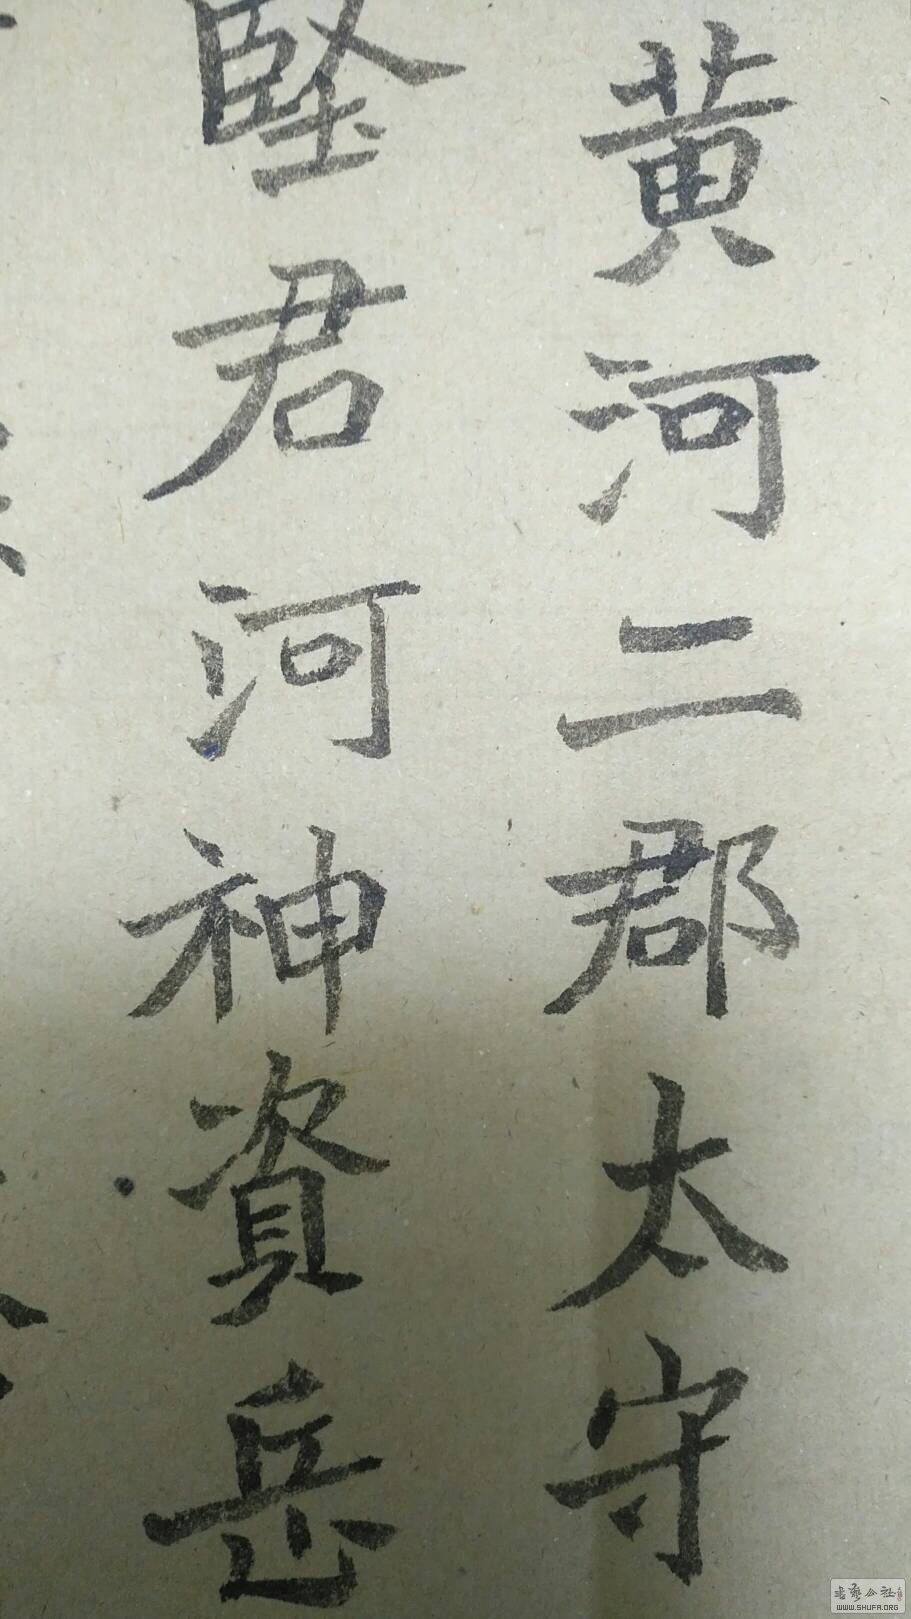 黄河二郡太守
堅君河神資岳
书艺公社
WWW.SHUFA.ORG